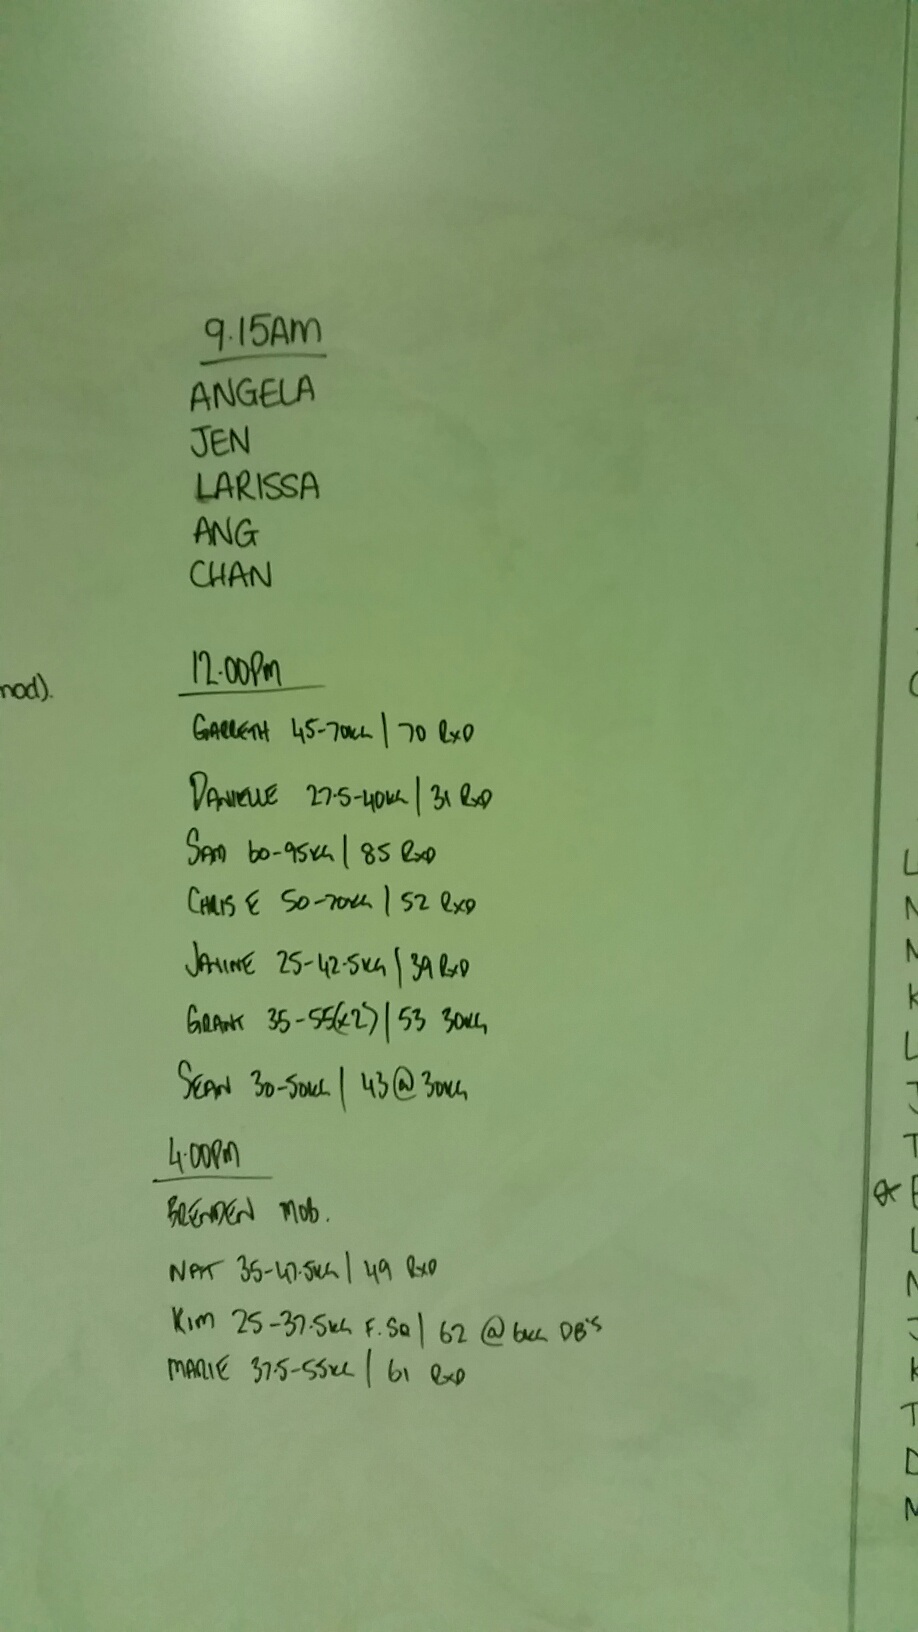 9.15AM
ANGELA
JEN
LARISSA
ANG
CHAN
mod).
12.00PM
GARRETH 45-70KG | 70 RXD
DANIELLE 27.5-40KG | 31 RXD
SAM 60-95KG | 85 RXD
CHRIS E 50-70KG | 52 RXD
JANINE 25-42.5KG | 39 RXD
GRANT 35-55(x2) | 53 30KG
SEAN 30-50KG | 43 @ 30KG
4.00PM
BRENDEN MOB.
NAT 35-47.5KG | 49 RXD
KIM 25-37.5KG F.SQ | 62 @ 6KG DB'S
MARIE 37.5-55KG | 61 RXD